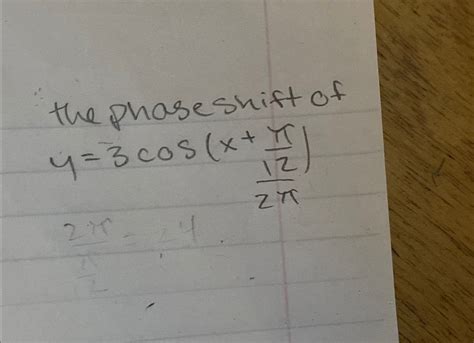 the phase shift of
y = 3 cos (x + π/12)
2π
2π/(π/2) = 4